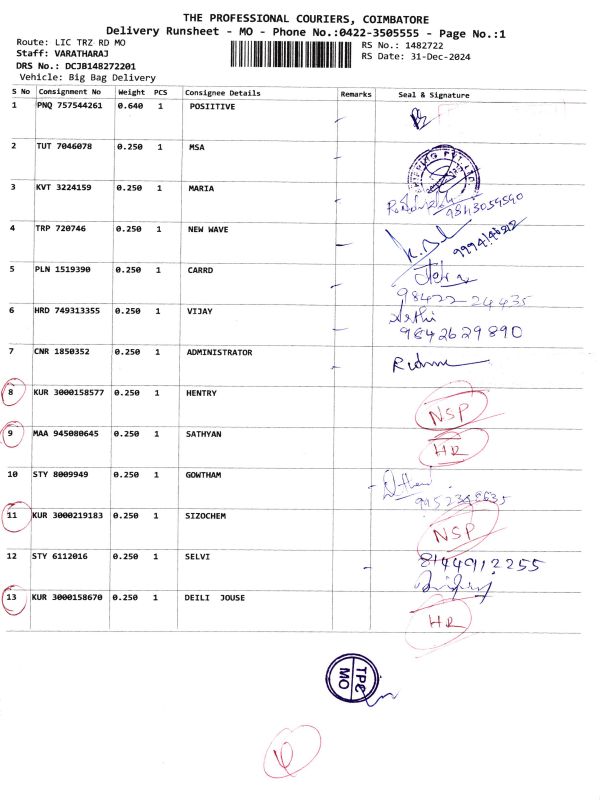 THE PROFESSIONAL COURIERS, COIMBATORE
Delivery Runsheet - MO - Phone No.:0422-3505555 - Page No.:1
Route: LIC TRZ RD MO RS No.: 1482722
Staff: VARATHARAJ RS Date: 31-Dec-2024
DRS No.: DCJB148272201
Vehicle: Big Bag Delivery
S No Consignment No Weight PCS Consignee Details Remarks Seal & Signature
1 PNQ 757544261 0.640 1 POSIITIVE
2 TUT 7046078 0.250 1 MSA
3 KVT 3224159 0.250 1 MARIA
9843059590
4 TRP 720746 0.250 1 NEW WAVE
5 PLN 1519390 0.250 1 CARRD
98422 24435
6 HRD 749313355 0.250 1 VIJAY
9842629890
7 CNR 1850352 0.250 1 ADMINISTRATOR
8 KUR 3000158577 0.250 1 HENTRY NSP
9 MAA 945080645 0.250 1 SATHYAN HR
10 STY 8009949 0.250 1 GOWTHAM
11 KUR 3000219183 0.250 1 SIZOCHEM NSP
12 STY 6112016 0.250 1 SELVI 8144912255
13 KUR 3000158670 0.250 1 DEILI JOUSE HR
TPC
MO